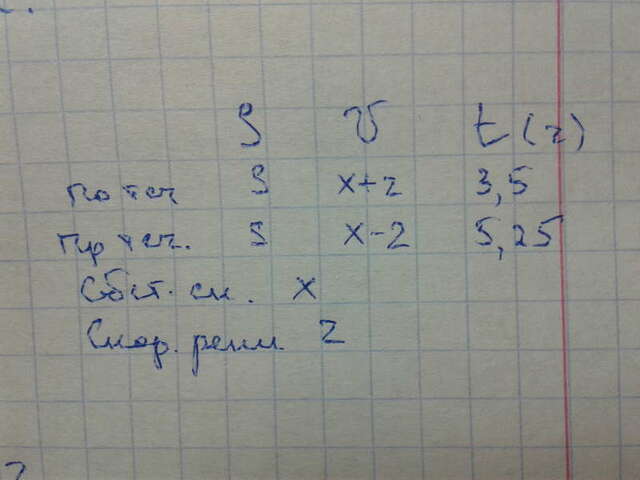 S v t (ч)
по теч S x+2 3,5
пр теч. S x-2 5,25
Собст. ск. x
Скор. реки 2
2